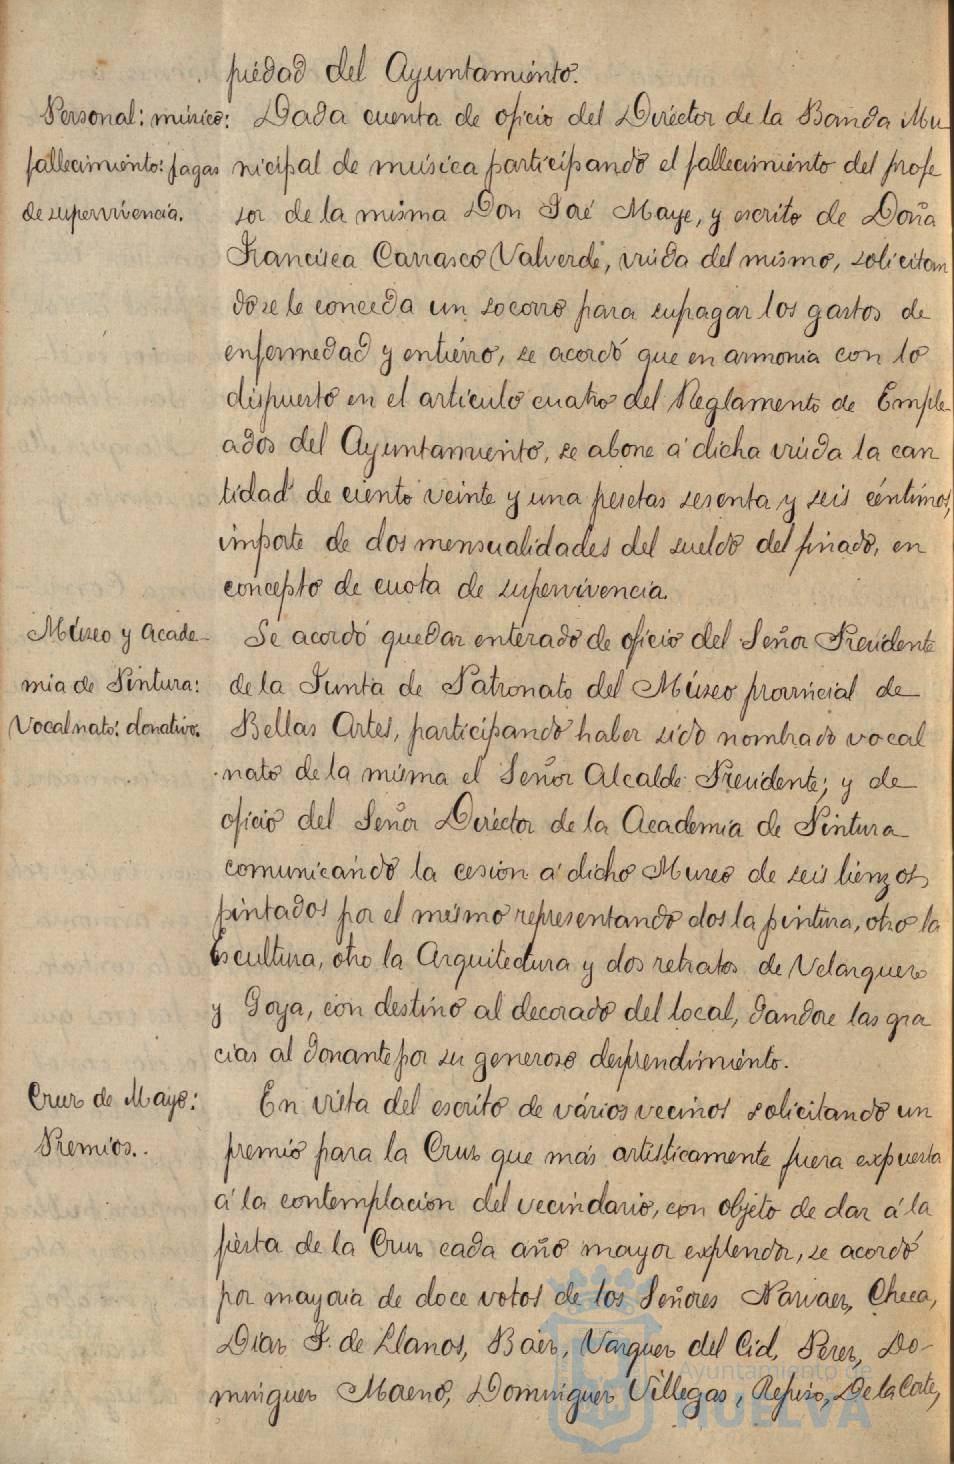 piedad del Ayuntamiento.
Personal: músico:
fallecimiento: pagas
de supervivencia.
Dada cuenta de oficio del Director de la Banda Mu
nicipal de música participando el fallecimiento del profe
sor de la misma Don José Maye, y escrito de Doña
Francisca Carrasco Valverde, viuda del mismo, solicitan
dose le conceda un socorro para supagar los gastos de
enfermedad y entierro, se acordó que en armonia con lo
dispuesto en el artículo cuatro del Reglamento de Emple-
ados del Ayuntamiento, se abone á dicha viuda la can
tidad de ciento veinte y una pesetas sesenta y seis céntimos,
importe de dos mensualidades del sueldo del finado, en
concepto de cuota de supervivencia.
Museo y Acade-
mia de Pintura:
Vocal nato: donativo.
Se acordó quedar enterado de oficio del Señor Presidente
de la Junta de Patronato del Museo provincial de
Bellas Artes, participando haber sido nombrado vocal
nato de la misma el Señor Alcalde Presidente; y de
oficio del Señor Director de la Academia de Pintura
comunicando la cesion á dicho Museo de seis lienzos
pintados por el mismo representando dos la pintura, otro la
Escultura, otro la Arquitectura y dos retratos de Velazquez
y Goya, con destino al decorado del local, dandose las gra
cias al donante por su generoso desprendimiento.
Cruz de Mayo:
Premios.
En vista del escrito de vários vecinos solicitando un
premio para la Cruz que más artísticamente fuera expuesta
á la contemplacion del vecindario, con objeto de dar á la
fiesta de la Cruz cada año mayor explendor, se acordó
por mayoria de doce votos de los Señores Narvaez, Checa,
Diaz F. de Llanos, Baez, Vazquez del Cid, Perez, Do-
minguez Moreno, Dominguez Villegas, Repiso, De la Corte,
Ayuntamiento de
HUELVA